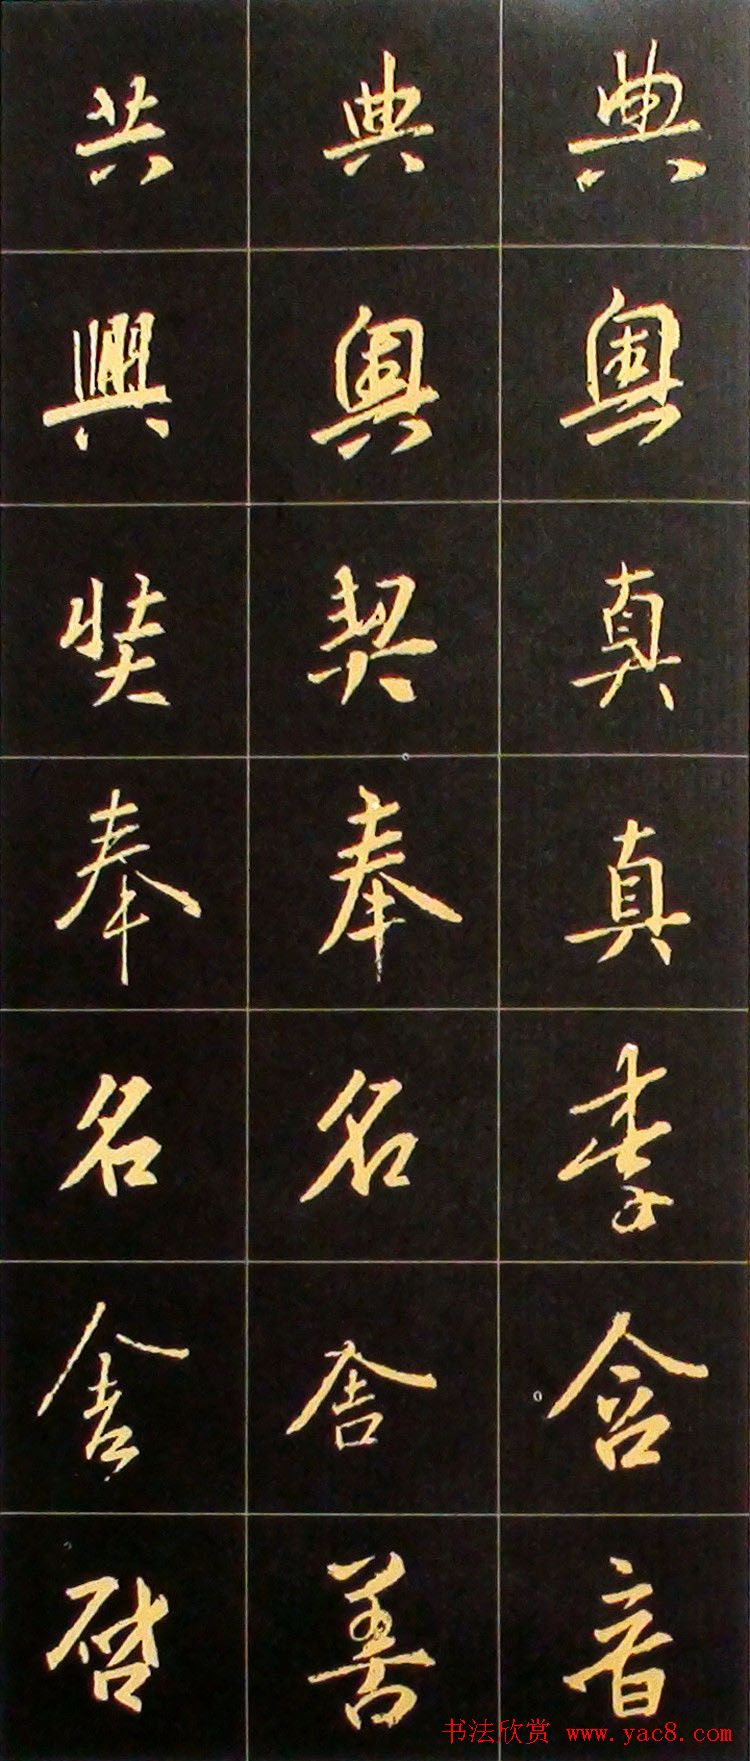 共 典 典
興 奥 奥
奘 契 真
奉 奉 真
名 名 李
舍 舍 含
啓 善 音
书法欣赏 www.yac8.com